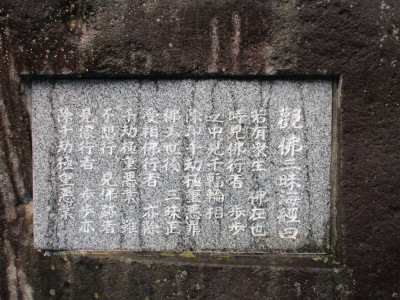 觀佛三昧海經曰
若有衆生 佛在世
時見佛行者 歩歩
之中見千輻輪相
除却千劫極重悪罪
佛去世後 三昧正
受相佛行者 亦除
千劫極重悪業 雖
不想行 見佛迹者
見像行者 歩歩亦
除千劫極重悪業